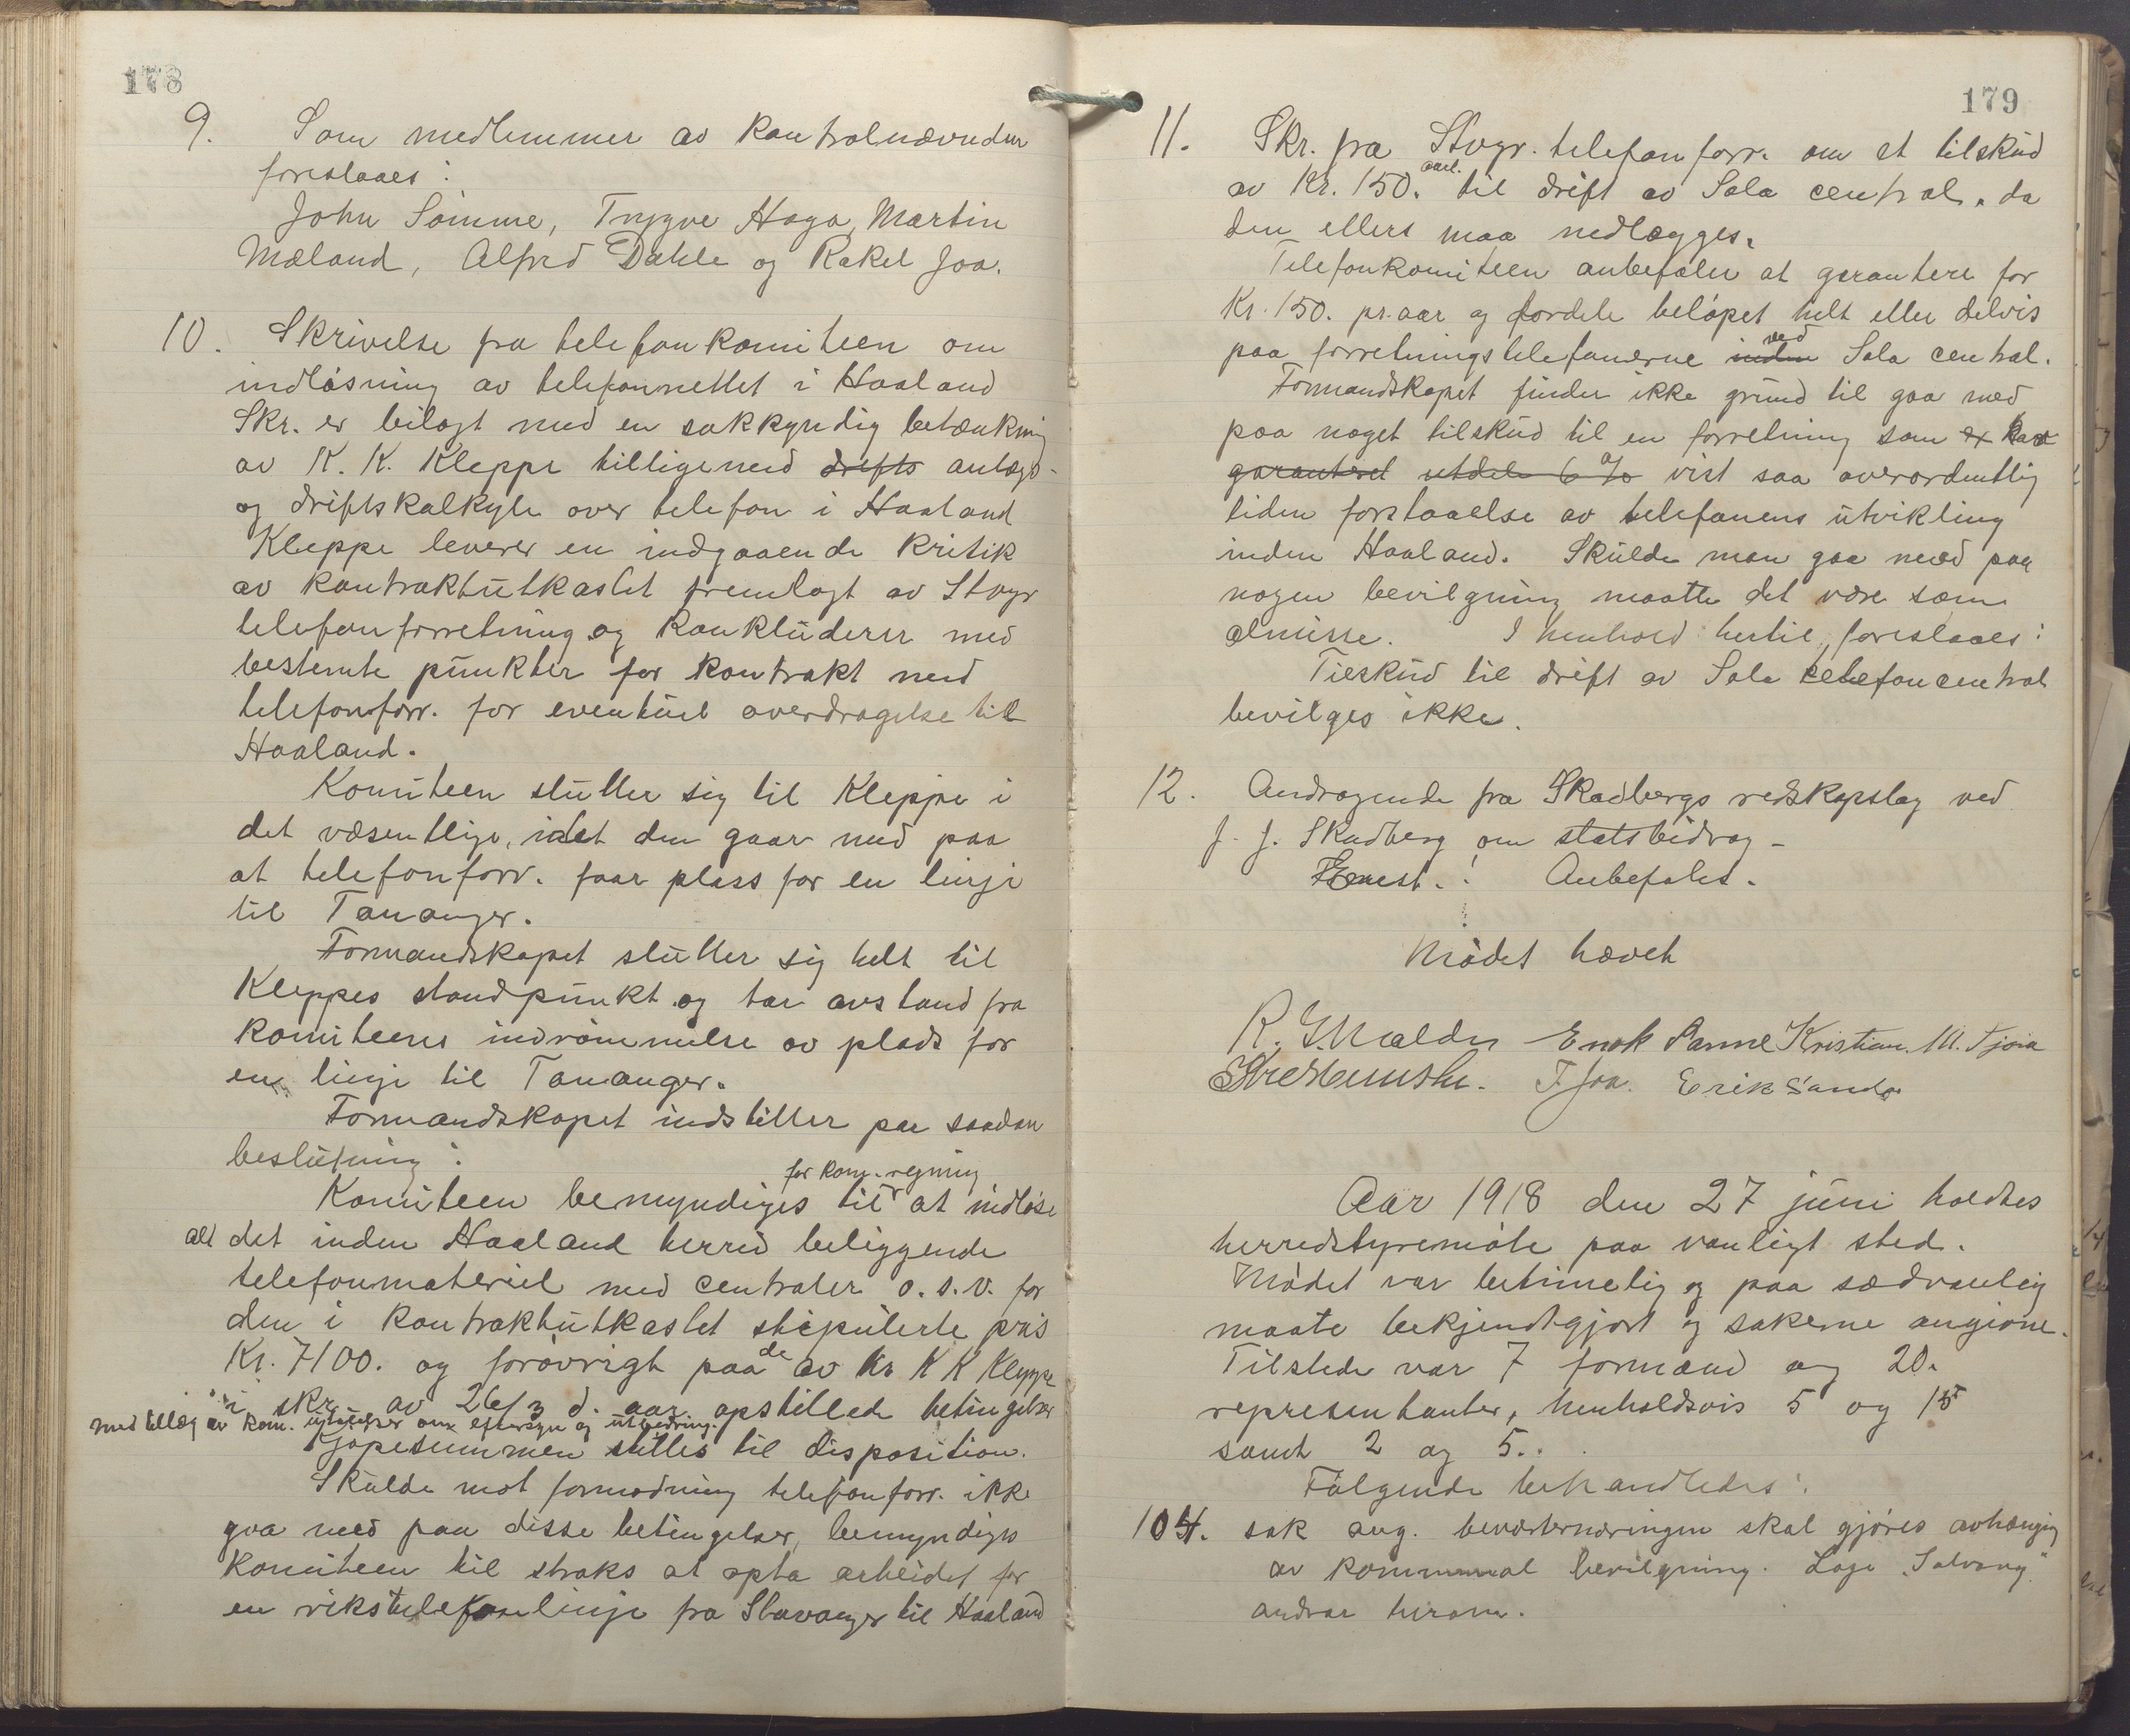 178
9. Som medlemmer av kontrolnævnden
foreslaaes:
John Sømme, Trygve Haga, Martin
Mæland, Alfred Dahle og Rakel Joa.
10. Skrivelse fra telefonkomiteen om
indløsning av telefonnettet i Haaland
Skr. er bilagt med en sakkyndig betænkning
av K. K. Kleppe tilligemed drifts anlægs-
og driftskalkyle over telefon i Haaland
Kleppe leverer en indgaaende kritik
av kontraktutkastet fremlagt av Stvgr
telefonforretning og konkluderer med
bestemte punkter for kontrakt med
telefonforr. for eventuel overdragelse til
Haaland.
Komiteen slutter sig til Kleppe i
det væsentlige, idet den gaar med paa
at telefonforr. faar plass for en linje
til Tananger.
Formandskapet slutter sig helt til
Kleppes standpunkt og tar avstand fra
komiteens indrømmelse av plads for
en linje til Tananger.
Formandskapet indstiller paa saadan
beslutning:
for kom. regning
Komiteen bemyndiges til at indløse
alt det inden Haaland herred beliggende
telefonmateriel med centraler o.s.v. for
den i kontraktutkastet stipulerte pris
Kr. 7100. og forøvrigt paa de av Kr K K Kleppe
i skr. av 26/3 d. aar opstillede betingelser
med tillæg av kom. uttalelser om eftersyn og utbedring.
Kjøpesummen stilles til disposition.
Skulde mot formodning telefonforr. ikke
gaa med paa disse betingelser, bemyndiges
komiteen til straks at opta arbeidet for
en rikstelefonlinje fra Stavanger til Haaland
179
11. Skr. fra Stvgr. telefonforr. om et tilskud
av Kr. 150. aarl. til drift av Sola central, da
den ellers maa nedlægges.
Telefonkomiteen anbefaler at garantere for
Kr. 150. pr. aar og fordele beløpet helt eller delvis
paa forretningstelefonerne inden ved Sola central.
Formandskapet finder ikke grund til gaa med
paa noget tilskud til en forretning som er har
garanteret utdele 6 % vist saa overordentlig
liden forstaaelse av telefonens utvikling
inden Haaland. Skulde man gaa med paa
nogen bevilgning maatte det være som
almisse. I henhold hertil foreslaaes:
Tilskud til drift av Sola telefoncentral
bevilges ikke.
12. Andragende fra Skadbergs redskapslag ved
J. J. Skadberg om statsbidrag –
Anbefales.
Mødet hævet
Enok Sømme Kristian M. Tjora
T. Joa. Erik Sande
Aar 1918 den 27 juni holdtes
herredstyremøte paa vanligt sted.
Mødet var betimelig og paa sædvanlig
maate bekjendtgjort og sakerne angivne.
Tilstede var 7 formænd og 20.
representanter, henholdsvis 5 og 15
samt 2 og 5.
Følgende behandledes:
104. sak ang. beværternæringen skal gjøres avhængig
av kommunal bevilgning. Loge "Solvang"
andrar herom.